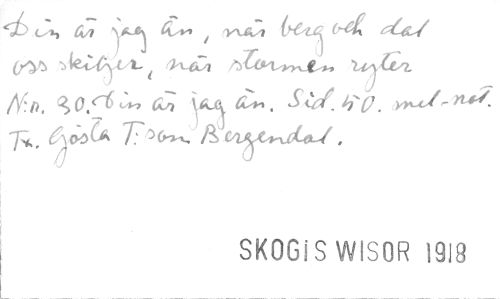 Din är jag än, när berg och dal
oss skiljer, när stormen ryter
N:o. 30. Din är jag än. Sid. 50. mel-not.
Tx. Gösta T:son Bergendal.
SKOGiS WISOR 1918